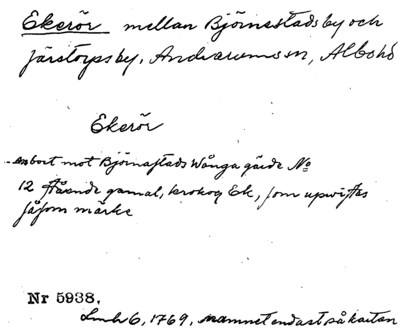 Ekerör mellan Björnastads by och
Järstorps by, Andrarums sn, Albo hd
Ekerör
bort mot Björnastads Wånga gärde No
12 stående gamal, krokog Ek, som upwistes
såsom märke
Nr 5938,
Lmh 6, 1769, namnet endast på kartan